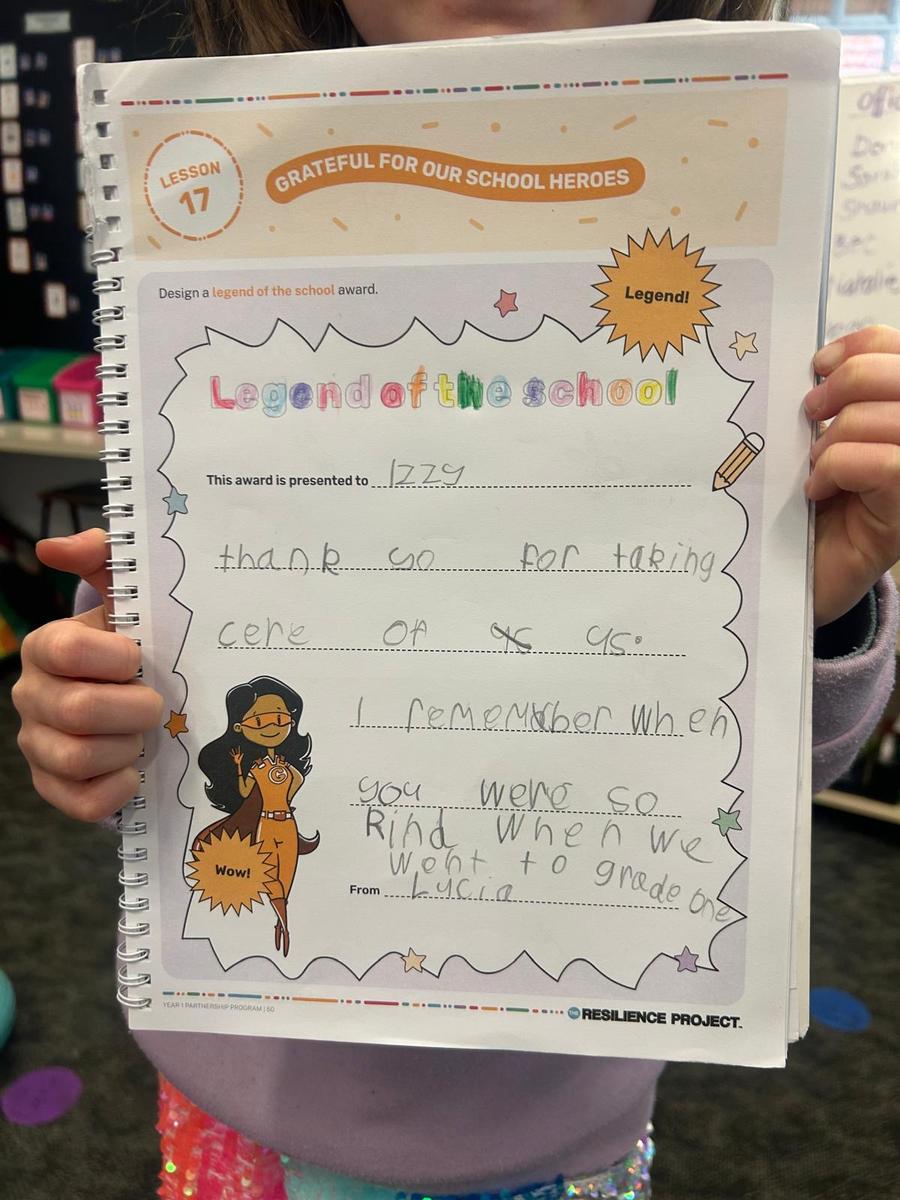 LESSON
17
GRATEFUL FOR OUR SCHOOL HEROES
Design a legend of the school award.
Legend!
Legend of the school
This award is presented to Izzy
thank yo for taking
cere of ys ys.
I remember when
you were so
kind when we
went to grade one
From Lycia
Wow!
YEAR 1 PARTNERSHIP PROGRAM | 60
THE RESILIENCE PROJECT.